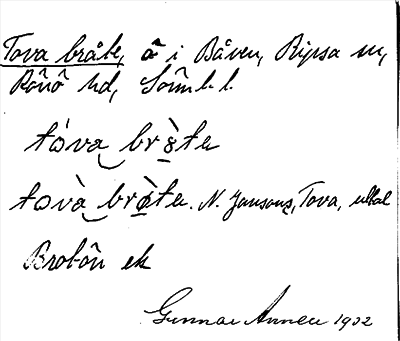 Tova bråte, ö i Båven, Ripsa sn,
Rönö hd, Sörml. l.
tóva brò̤te
tovà brò̤te. N. Jansons, Tova, uttal
Brobön ek
Gunnar Annell 1932